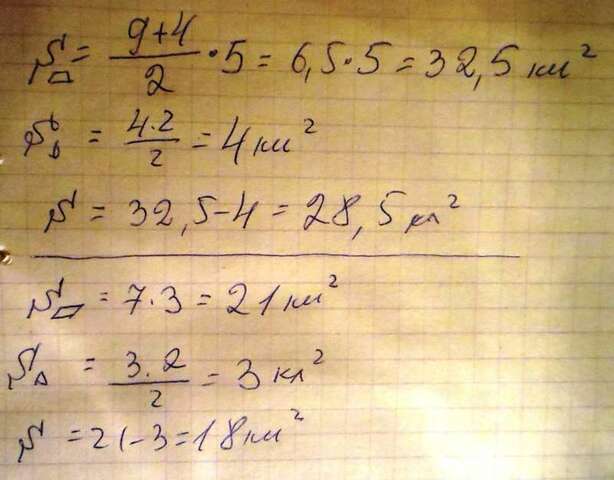 S▱ = (9+4)/2 · 5 = 6,5 · 5 = 32,5 км²
S△ = (4·2)/2 = 4 км²
S = 32,5 - 4 = 28,5 км²
S▱ = 7·3 = 21 км²
S△ = (3·2)/2 = 3 км²
S = 21-3 = 18 км²